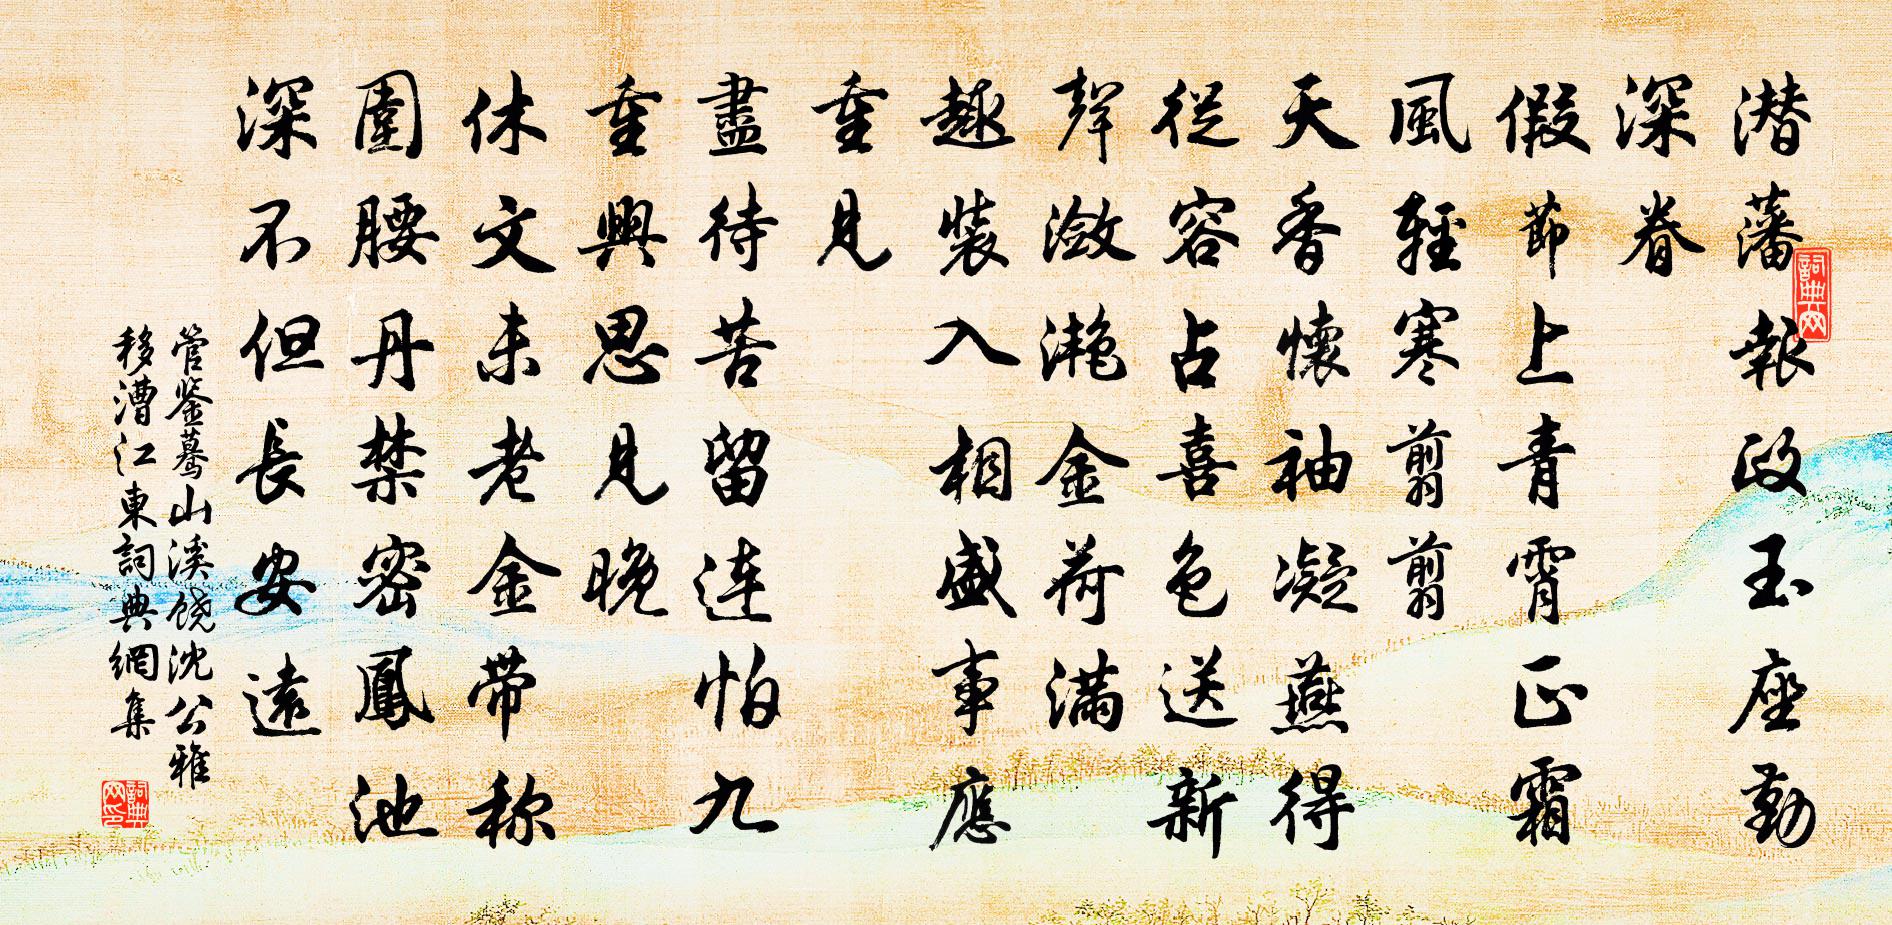 潜藩報政玉座勤
深眷
假節上青霄正霜
風輕寒剪剪
天香懷袖凝燕得
從容占喜色送新
聲瀲灔金荷滿
趣裝入相盛事應
重見
盡待苦留連怕九
重興思見晚
休文未老金带称
圍腰丹禁密鳳池
深不但長安遠
管鉴蓦山溪饶沈公雅
移漕江東詞典網集
詞典网
詞典网印